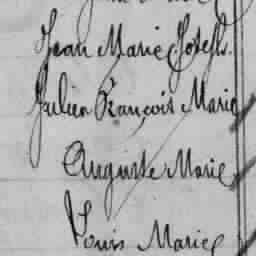 Jean Marie Joseph.
Julien François Marie
Auguste Marie
Louis Marie